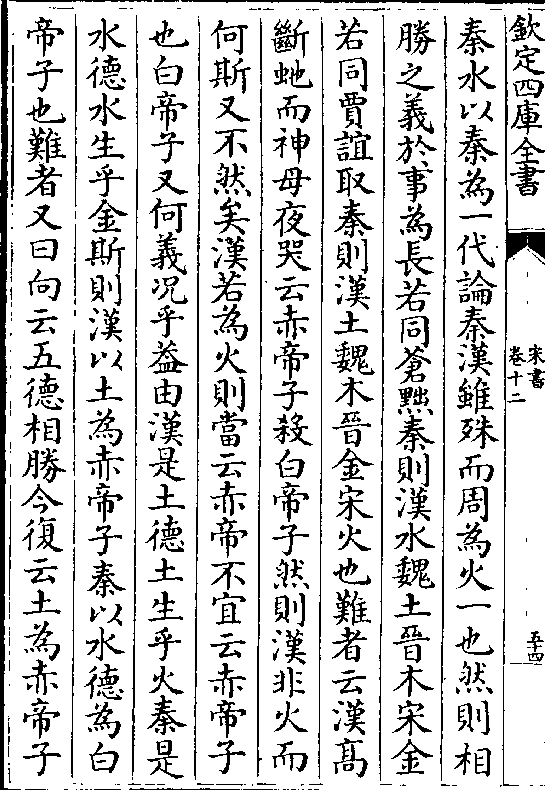 欽定四庫全書
宋書
卷十二
五十四
秦水以秦為一代論秦漢雖殊而周為火一也然則相
勝之義於事為長若同蒼黜秦則漢水魏土晉木宋金
若同賈誼取秦則漢土魏木晉金宋火也難者云漢高
斷虵而神母夜哭云赤帝子殺白帝子然則漢非火而
何斯又不然矣漢若為火則當云赤帝不宜云赤帝子
也白帝子又何義況乎葢由漢是土德土生乎火秦是
水德水生乎金斯則漢以土為赤帝子秦以水德為白
帝子也難者又曰向云五德相勝今復云土為赤帝子